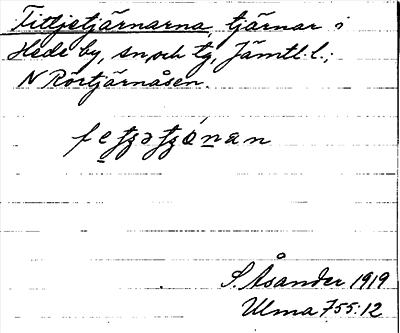 Tittjetjärnarna, tjärnar i
Hede by, sn, och tg, Jämtl. l.;
N Rörtjärnåsen.
S. Åsander 1919
Ulma 755:12